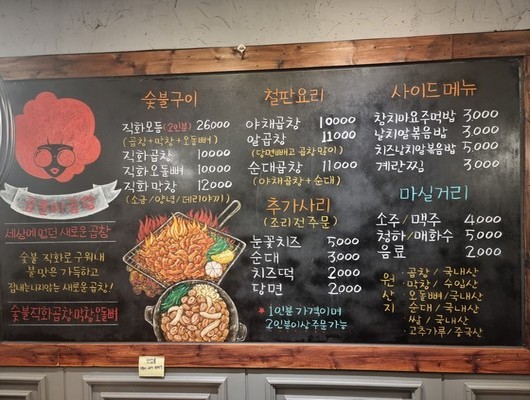 세상에 없던 새로운 곱창
숯불 직화로 구워내
불맛은 가득하고
잡내는 나지않는 새로운 곱창!
숯불직화곱창막창오돌뼈
숯불구이
직화모듬(2인분) 26000
(곱창+막창+오돌뼈)
직화곱창 10000
직화오돌뼈 10000
직화막창 12000
(소금/양념/데리야끼)
철판요리
야채곱창 10000
알곱창 11000
(당면빼고 곱창많이)
순대곱창 11000
(야채곱창+순대)
추가사리
(조리전주문)
눈꽃치즈 5000
순대 3000
치즈떡 2000
당면 2000
* 1인분 가격이며
2인분이상 주문가능
사이드메뉴
참치마요주먹밥 3,000
날치알볶음밥 3,000
치즈날치알볶음밥 5,000
계란찜 3,000
마실거리
소주/맥주 4000
청하/매화수 5000
음료 2000
원산지
곱창/국내산
막창/수입산
오돌뼈/국내산
순대/국내산
쌀/국내산
고추가루/중국산